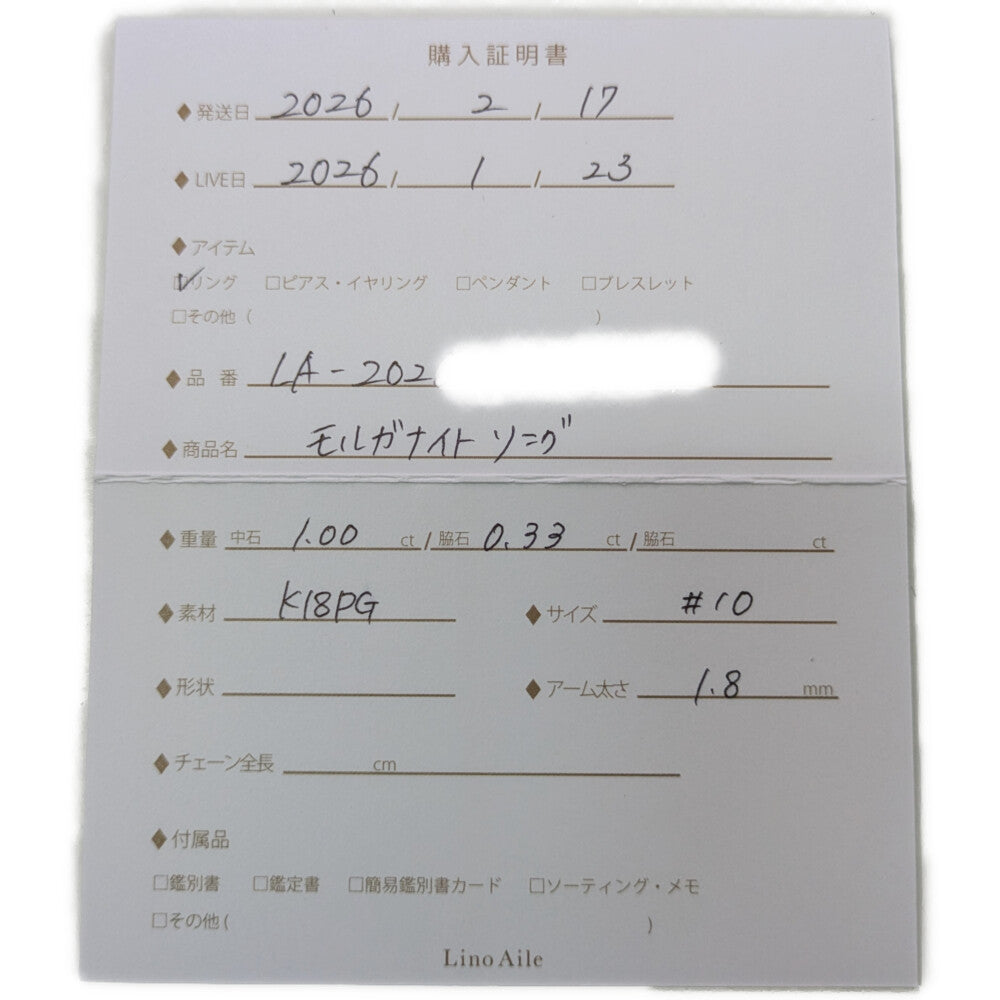 購入証明書
◆発送日 2026 / 2 / 17
◆LIVE日 2026 / 1 / 23
◆アイテム
☑リング □ピアス・イヤリング □ペンダント □ブレスレット
□その他 ( )
◆品 番 LA-202
◆商品名 モルガナイト リング
◆重量 中石 1.00 ct / 脇石 0.33 ct / 脇石 ct
◆素材 K18PG ◆サイズ #10
◆形状 ◆アーム太さ 1.8 mm
◆チェーン全長 cm
◆付属品
□鑑別書 □鑑定書 □簡易鑑別書カード □ソーティング・メモ
□その他 ( )
Lino Aile